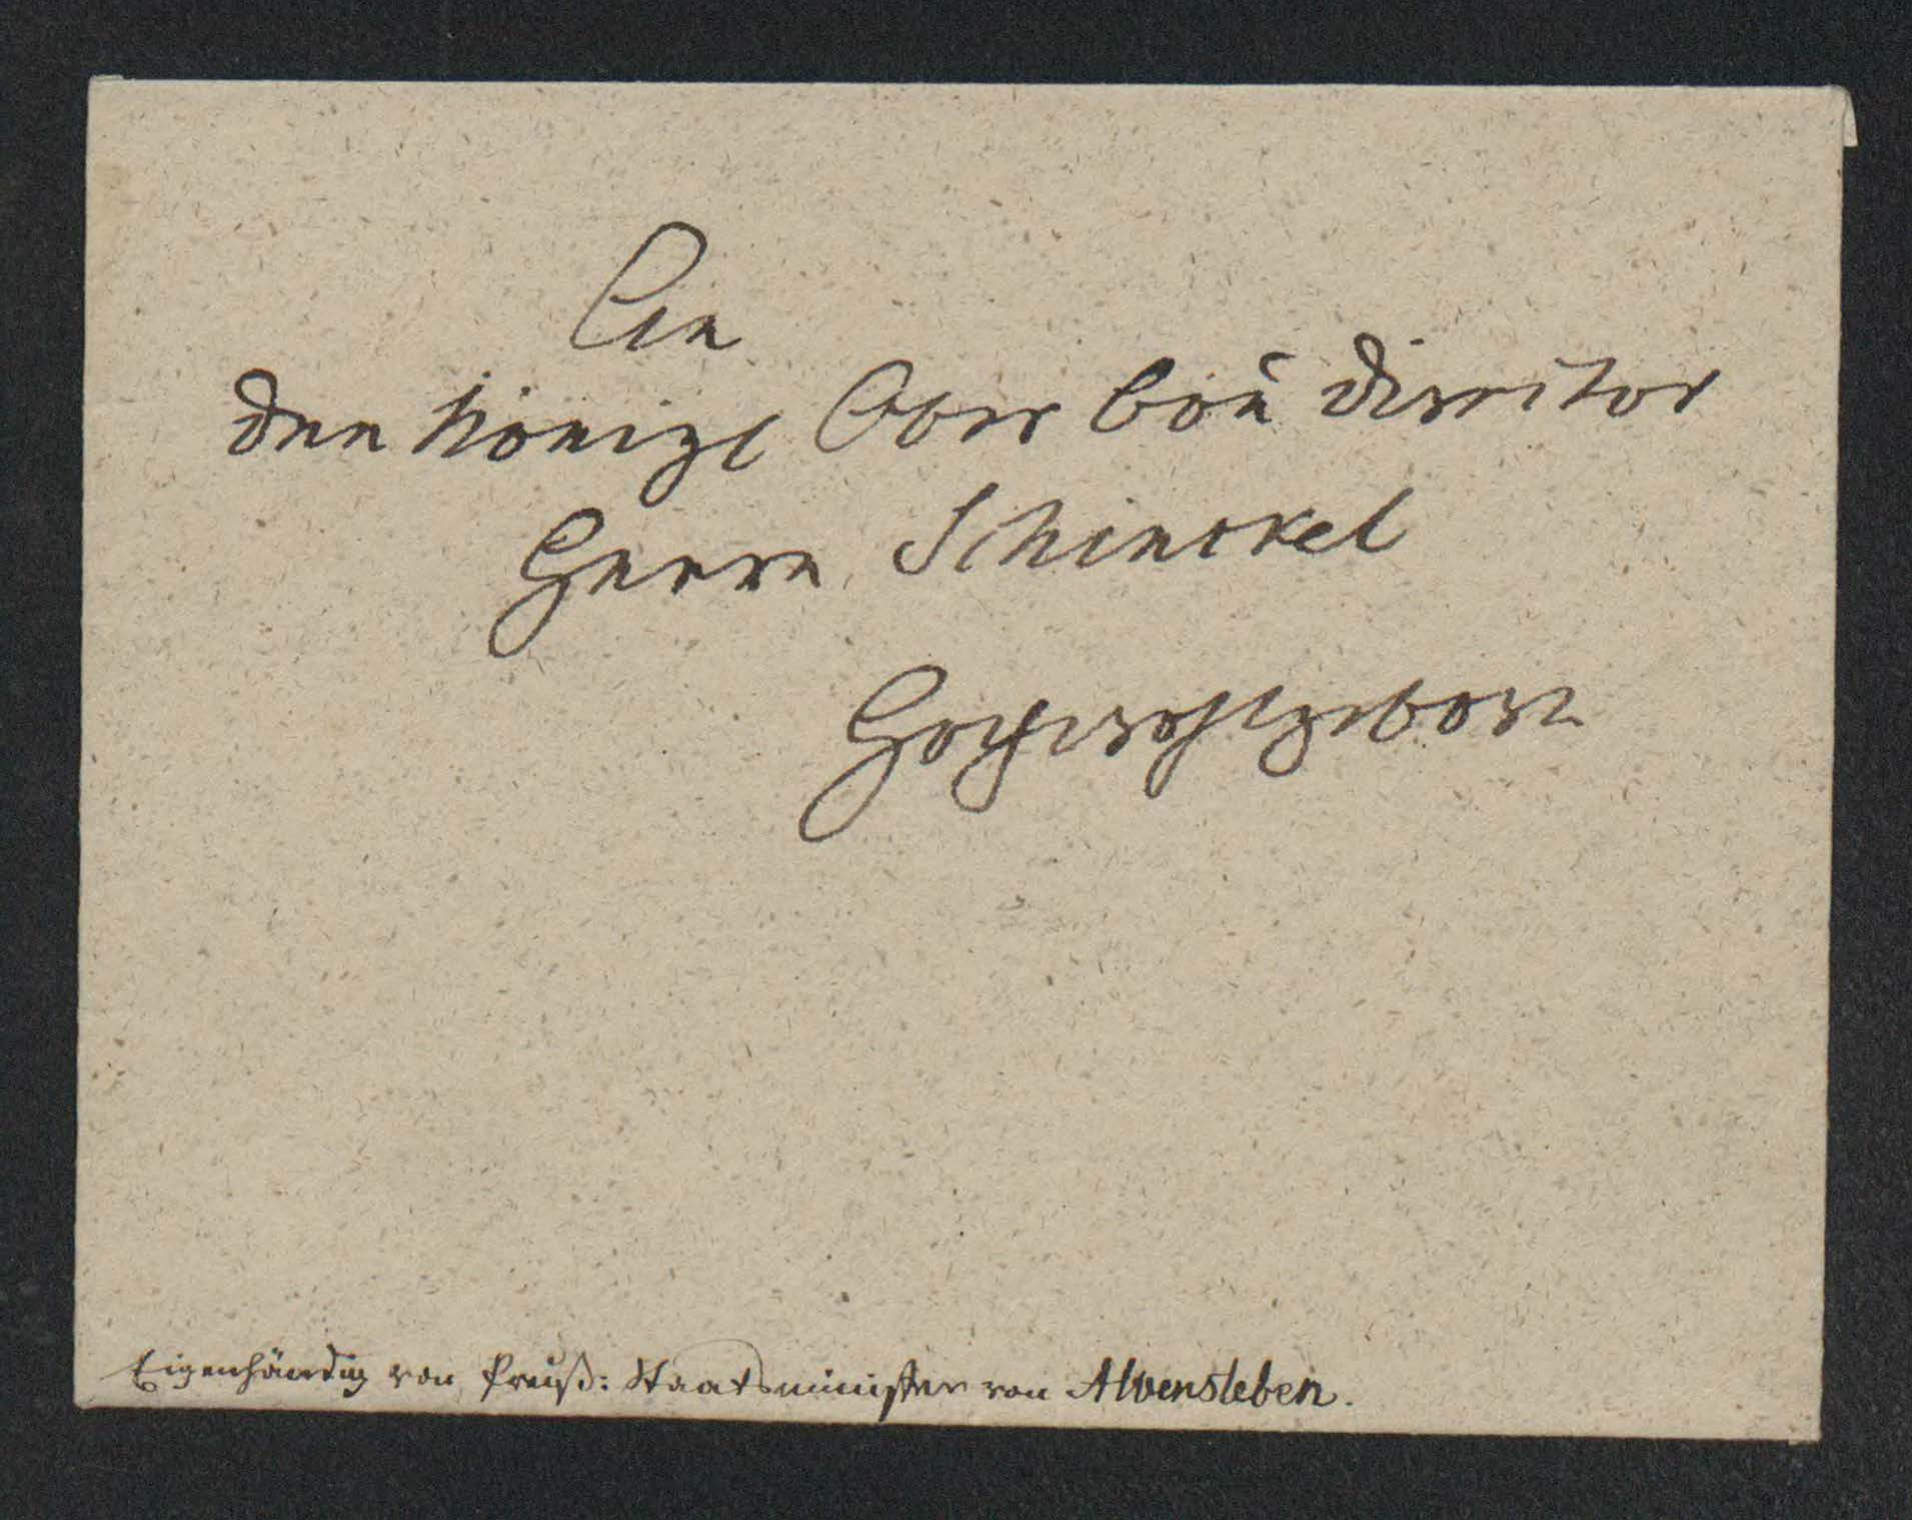 An
den Königl Ober Bau Director
Herrn Schinckel
Hochwohlgeborn
Eigenhändig von Preuß: Staatsminister von Alvensleben.